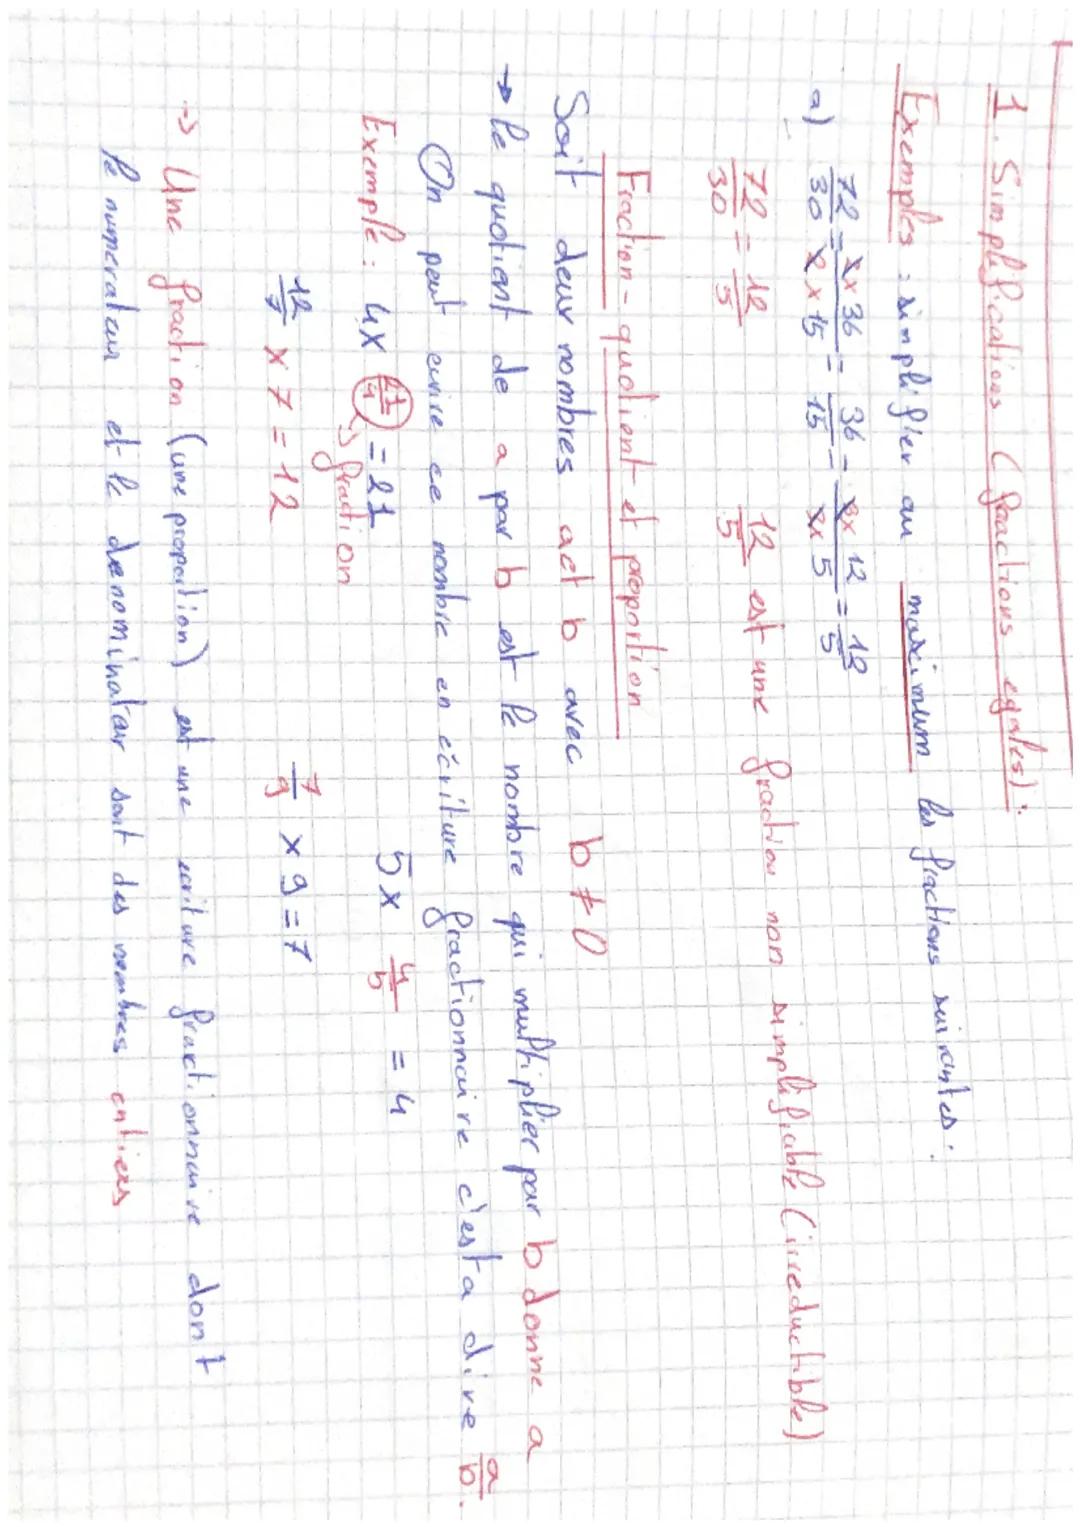 1. Simplifications (fractions egales):
Exemples : simplifier au maximum les fractions suivantes :
a) 72/30 = 2 x 36 / 2 x 15 = 36/15 = 3 x 12 / 3 x 5 = 12/5
72/30 = 12/5 12/5 est une fraction non simplifiable (irreductible)
Fraction - quotient et proportion
Soit deux nombres a et b avec b ≠ 0
→ le quotient de a par b est le nombre qui multiplier par b donne a
On peut ecrire ce nombre en ecriture fractionnaire c'est a dire a/b.
Exemple : 4 x 21/4 = 21 5 x 4/5 = 4
→ fraction
12/7 x 7 = 12 7/9 x 9 = 7
→ Une fraction (une proportion) est une ecriture fractionnaire dont
le numerateur et le denominateur sont des nombres entiers